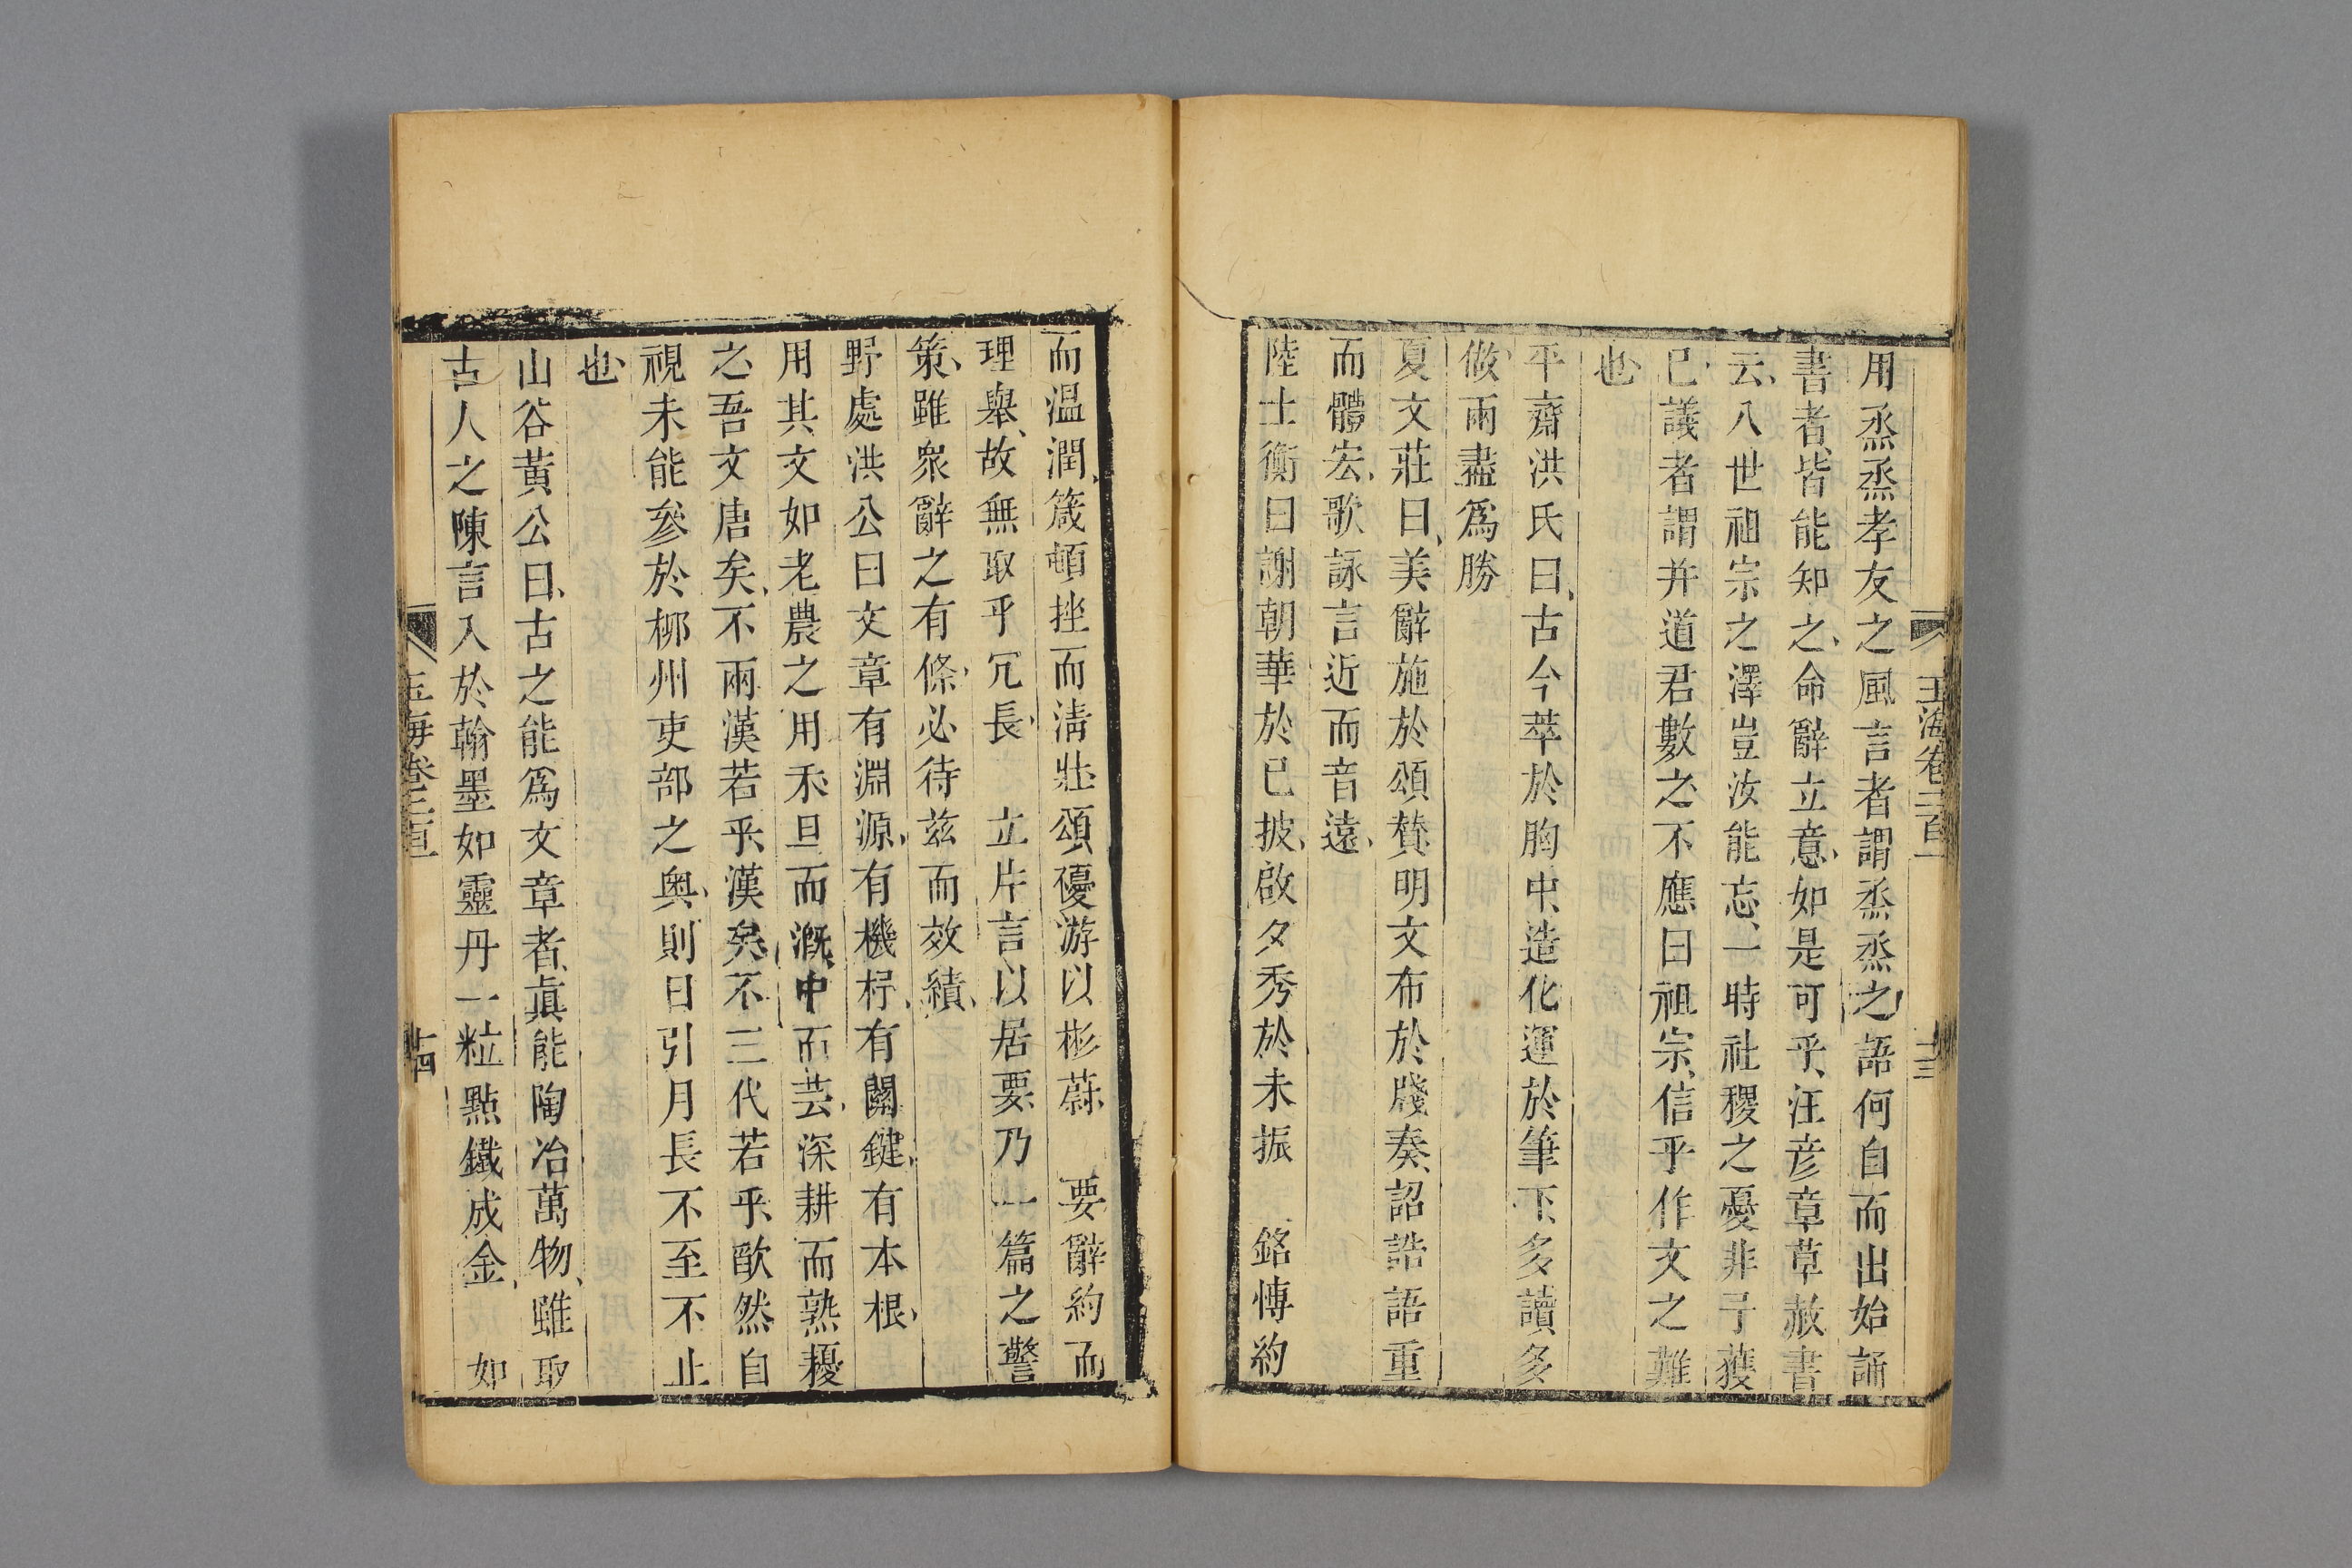 用烝烝孝友之風言者謂烝烝之語何自而出始誦
書者皆能知之命辭立意如是可乎汪彦章草赦書
云八世祖宗之澤豈汝能忘一時社稷之憂非予獲
已議者謂并道君數之不應曰祖宗信乎作文之難
也
平齋洪氏曰古今萃於胸中造化運於筆下多讀多
做兩盡爲勝
夏文莊曰美辭施於頌賛明文布於牋奏詔誥語重
而體宏歌詠言近而音遠
陸士衡曰謝朝華於已披啟夕秀於未振 銘愽約
玉海卷二百一 十三
而溫潤箴頓挫而淸壯頌優游以彬蔚 要辭約而
理舉故無取乎冗長 立片言以居要乃一篇之警
策雖衆辭之有條必待兹而效績
野處洪公曰文章有淵源有機杼有關鍵有本根
用其文如老農之用禾旦而溉中而芸深耕而熟擾
之吾文唐矣不兩漢若乎漢矣不三代若乎歐然自
視未能參於栁州吏部之奥則日引月長不至不止
也
山谷黃公曰古之能爲文章者眞能陶冶萬物雖取
古人之陳言入於翰墨如靈丹一粒點鐵成金 如
玉海卷二百一 十四